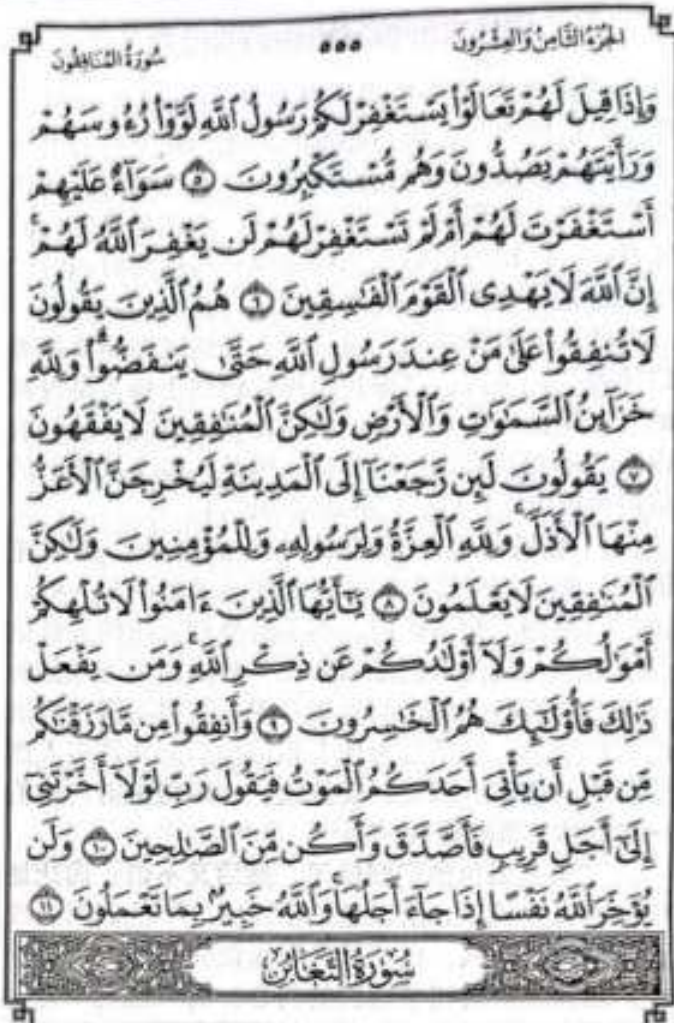 الجزء الثامن والعشرون
٥٥٥
سورة المنافقون
وَإِذَا قِيلَ لَهُمْ تَعَالَوْاْ يَسْتَغْفِرْ لَكُمْ رَسُولُ ٱللَّهِ لَوَّوْاْ رُءُوسَهُمْ
وَرَأَيْتَهُمْ يَصُدُّونَ وَهُم مُّسْتَكْبِرُونَ ٥ سَوَآءٌ عَلَيْهِمْ
أَسْتَغْفَرْتَ لَهُمْ أَمْ لَمْ تَسْتَغْفِرْ لَهُمْ لَن يَغْفِرَ ٱللَّهُ لَهُمْۚ
إِنَّ ٱللَّهَ لَا يَهْدِى ٱلْقَوْمَ ٱلْفَٰسِقِينَ ٦ هُمُ ٱلَّذِينَ يَقُولُونَ
لَا تُنفِقُواْ عَلَىٰ مَنْ عِندَ رَسُولِ ٱللَّهِ حَتَّىٰ يَنفَضُّواْۗ وَلِلَّهِ
خَزَآئِنُ ٱلسَّمَٰوَٰتِ وَٱلْأَرْضِ وَلَٰكِنَّ ٱلْمُنَٰفِقِينَ لَا يَفْقَهُونَ
٧ يَقُولُونَ لَئِن رَّجَعْنَآ إِلَى ٱلْمَدِينَةِ لَيُخْرِجَنَّ ٱلْأَعَزُّ
مِنْهَا ٱلْأَذَلَّۚ وَلِلَّهِ ٱلْعِزَّةُ وَلِرَسُولِهِۦ وَلِلْمُؤْمِنِينَ وَلَٰكِنَّ
ٱلْمُنَٰفِقِينَ لَا يَعْلَمُونَ ٨ يَٰٓأَيُّهَا ٱلَّذِينَ ءَامَنُواْ لَا تُلْهِكُمْ
أَمْوَٰلُكُمْ وَلَآ أَوْلَٰدُكُمْ عَن ذِكْرِ ٱللَّهِۚ وَمَن يَفْعَلْ
ذَٰلِكَ فَأُوْلَٰٓئِكَ هُمُ ٱلْخَٰسِرُونَ ٩ وَأَنفِقُواْ مِن مَّا رَزَقْنَٰكُم
مِّن قَبْلِ أَن يَأْتِىَ أَحَدَكُمُ ٱلْمَوْتُ فَيَقُولَ رَبِّ لَوْلَآ أَخَّرْتَنِىٓ
إِلَىٰٓ أَجَلٍ قَرِيبٍ فَأَصَّدَّقَ وَأَكُن مِّنَ ٱلصَّٰلِحِينَ ١٠ وَلَن
يُؤَخِّرَ ٱللَّهُ نَفْسًا إِذَا جَآءَ أَجَلُهَاۚ وَٱللَّهُ خَبِيرٌۢ بِمَا تَعْمَلُونَ ١١
سورة التغابن